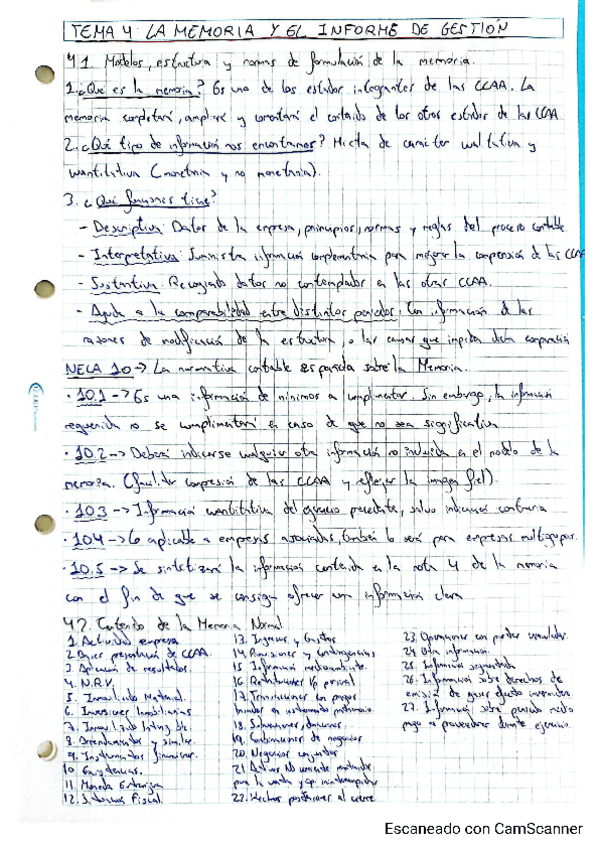 TEMA 4: LA MEMORIA Y EL INFORME DE GESTIÓN
4.1. Modelos, estructura y normas de formulación de la memoria.
1. ¿Qué es la memoria? Es uno de los estados integrantes de las CCAA. La
memoria completará, ampliará y comentará el contenido de los otros estados de las CCAA
2. ¿Qué tipo de información nos encontramos? Mixta de carácter cualitativa y
cuantitativa (monetaria y no monetaria).
3. ¿Qué funciones tiene?
- Descriptiva: Datos de la empresa, principios, normas y reglas del proceso contable.
- Interpretativa: Suministra información complementaria para mejorar la comprensión de las CCAA
- Sustantiva: Recogiendo datos no contemplados en las otras CCAA.
- Ayuda a la comparabilidad entre distintos periodos: Con información de las
razones de modificación de la estructura, o las causas que impiden dicha comparación
NECA 10 -> La normativa contable española sobre la Memoria.
· 10.1 -> Es una información de mínimos a cumplimentar. Sin embargo, la información
requerida no se cumplimentará en caso de que no sea significativa
· 10.2 -> Deberá indicarse cualquier otra información no incluida en el modelo de la
memoria. (facilitar compresión de las CCAA y reflejar la imagen fiel).
· 10.3 -> Información cuantitativa del ejercicio precedente, salvo indicación contraria
· 10.4 -> Lo aplicable a empresas asociadas, también lo será para empresas multigrupo.
· 10.5 -> Se sintetizará la información contenida en la nota 4 de la memoria
con el fin de que se consiga ofrecer una información clara
4.2. Contenido de la Memoria Normal
1. Actividad empresa
2. Bases presentación de CCAA.
3. Aplicación de resultados.
4. N.R.V.
5. Inmovilizado Material.
6. Inversiones Inmobiliarias
7. Inmovilizado Intangible.
8. Arrendamientos y similar.
9. Instrumentos financieros.
10. Existencias.
11. Moneda Extranjera
12. Situación Fiscal.
13. Ingresos y Gastos
14. Provisiones y Contingencias
15. Información medioambiente.
16. Retribuciones l/p personal
17. Transacciones con pagos
basados en instrumentos patrimonio.
18. Subvenciones, donaciones.
19. Combinaciones de negocios
20. Negocios conjuntos
21. Activos No corriente mantenidos
para la venta y op. interrumpidas
22. Hechos posteriores al cierre
23. Operaciones con partes vinculadas.
24. Otra información.
25. Información segmentada
26. Información sobre derechos de
emisión de gases efecto invernadero
27. Información sobre periodo medio
pago a proveedores durante ejercicio.
Escaneado con CamScanner